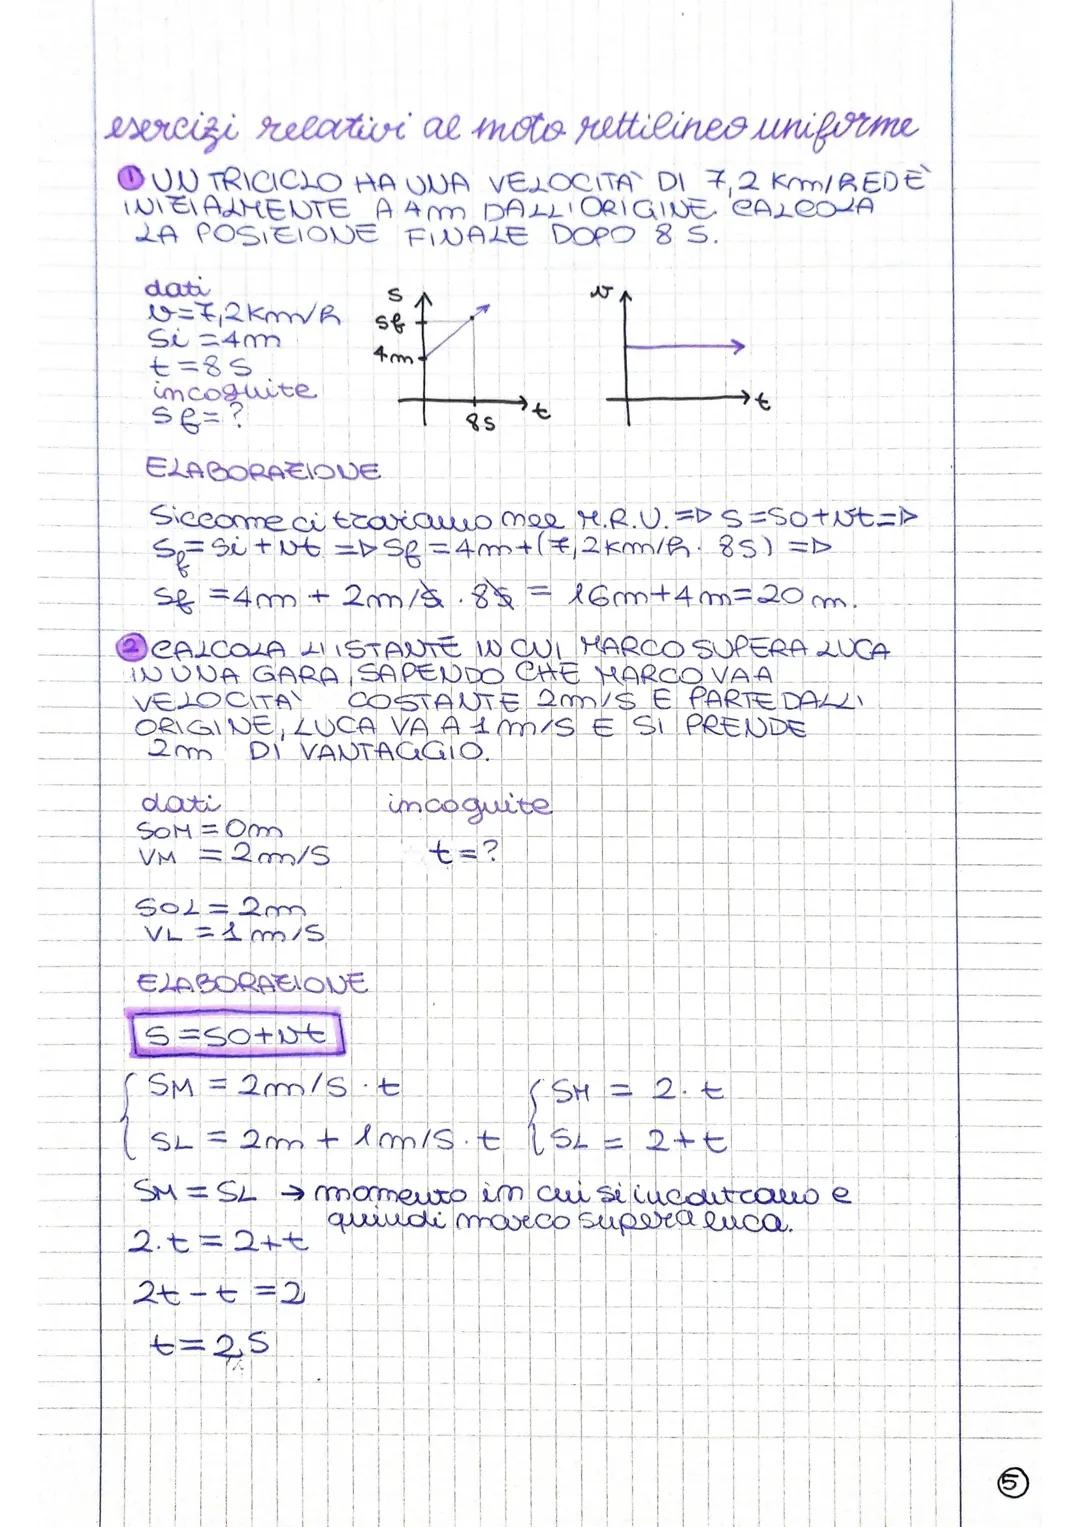 esercizi relativi al moto rettilineo uniforme
1 UN TRICICLO HA UNA VELOCITA' DI 7,2 Km/h ED È
INIZIALMENTE A 4m DALL'ORIGINE. CALCOLA
LA POSIZIONE FINALE DOPO 8 S.
dati
v=7,2Km/h
Si =4m
t =8S
incognite
Sf=?
S
Sf
4m
8S
t
v
t
ELABORAZIONE
Siccome ci troviamo nel M.R.U. => S=S0+vt=>
Sf=Si+vt => Sf=4m+(7,2Km/h. 8S) =>
Sf =4m + 2m/s . 8s = 16m+4m=20m.
2 CALCOLA L'ISTANTE IN CUI MARCO SUPERA LUCA
IN UNA GARA, SAPENDO CHE MARCO VA A
VELOCITA' COSTANTE 2m/s E PARTE DALL'
ORIGINE, LUCA VA A 1m/s E SI PRENDE
2m DI VANTAGGIO.
dati
incognite
SOM=0m
VM = 2m/s
t=?
SOL=2m
VL =1m/s
ELABORAZIONE
S=SO+vt
SM = 2m/s . t
SM = 2. t
SL = 2m + 1m/s. t
SL = 2+t
SM=SL → momento in cui si incontrano e
quindi marco supera luca.
2.t=2+t
2t-t=2
t=2s
5